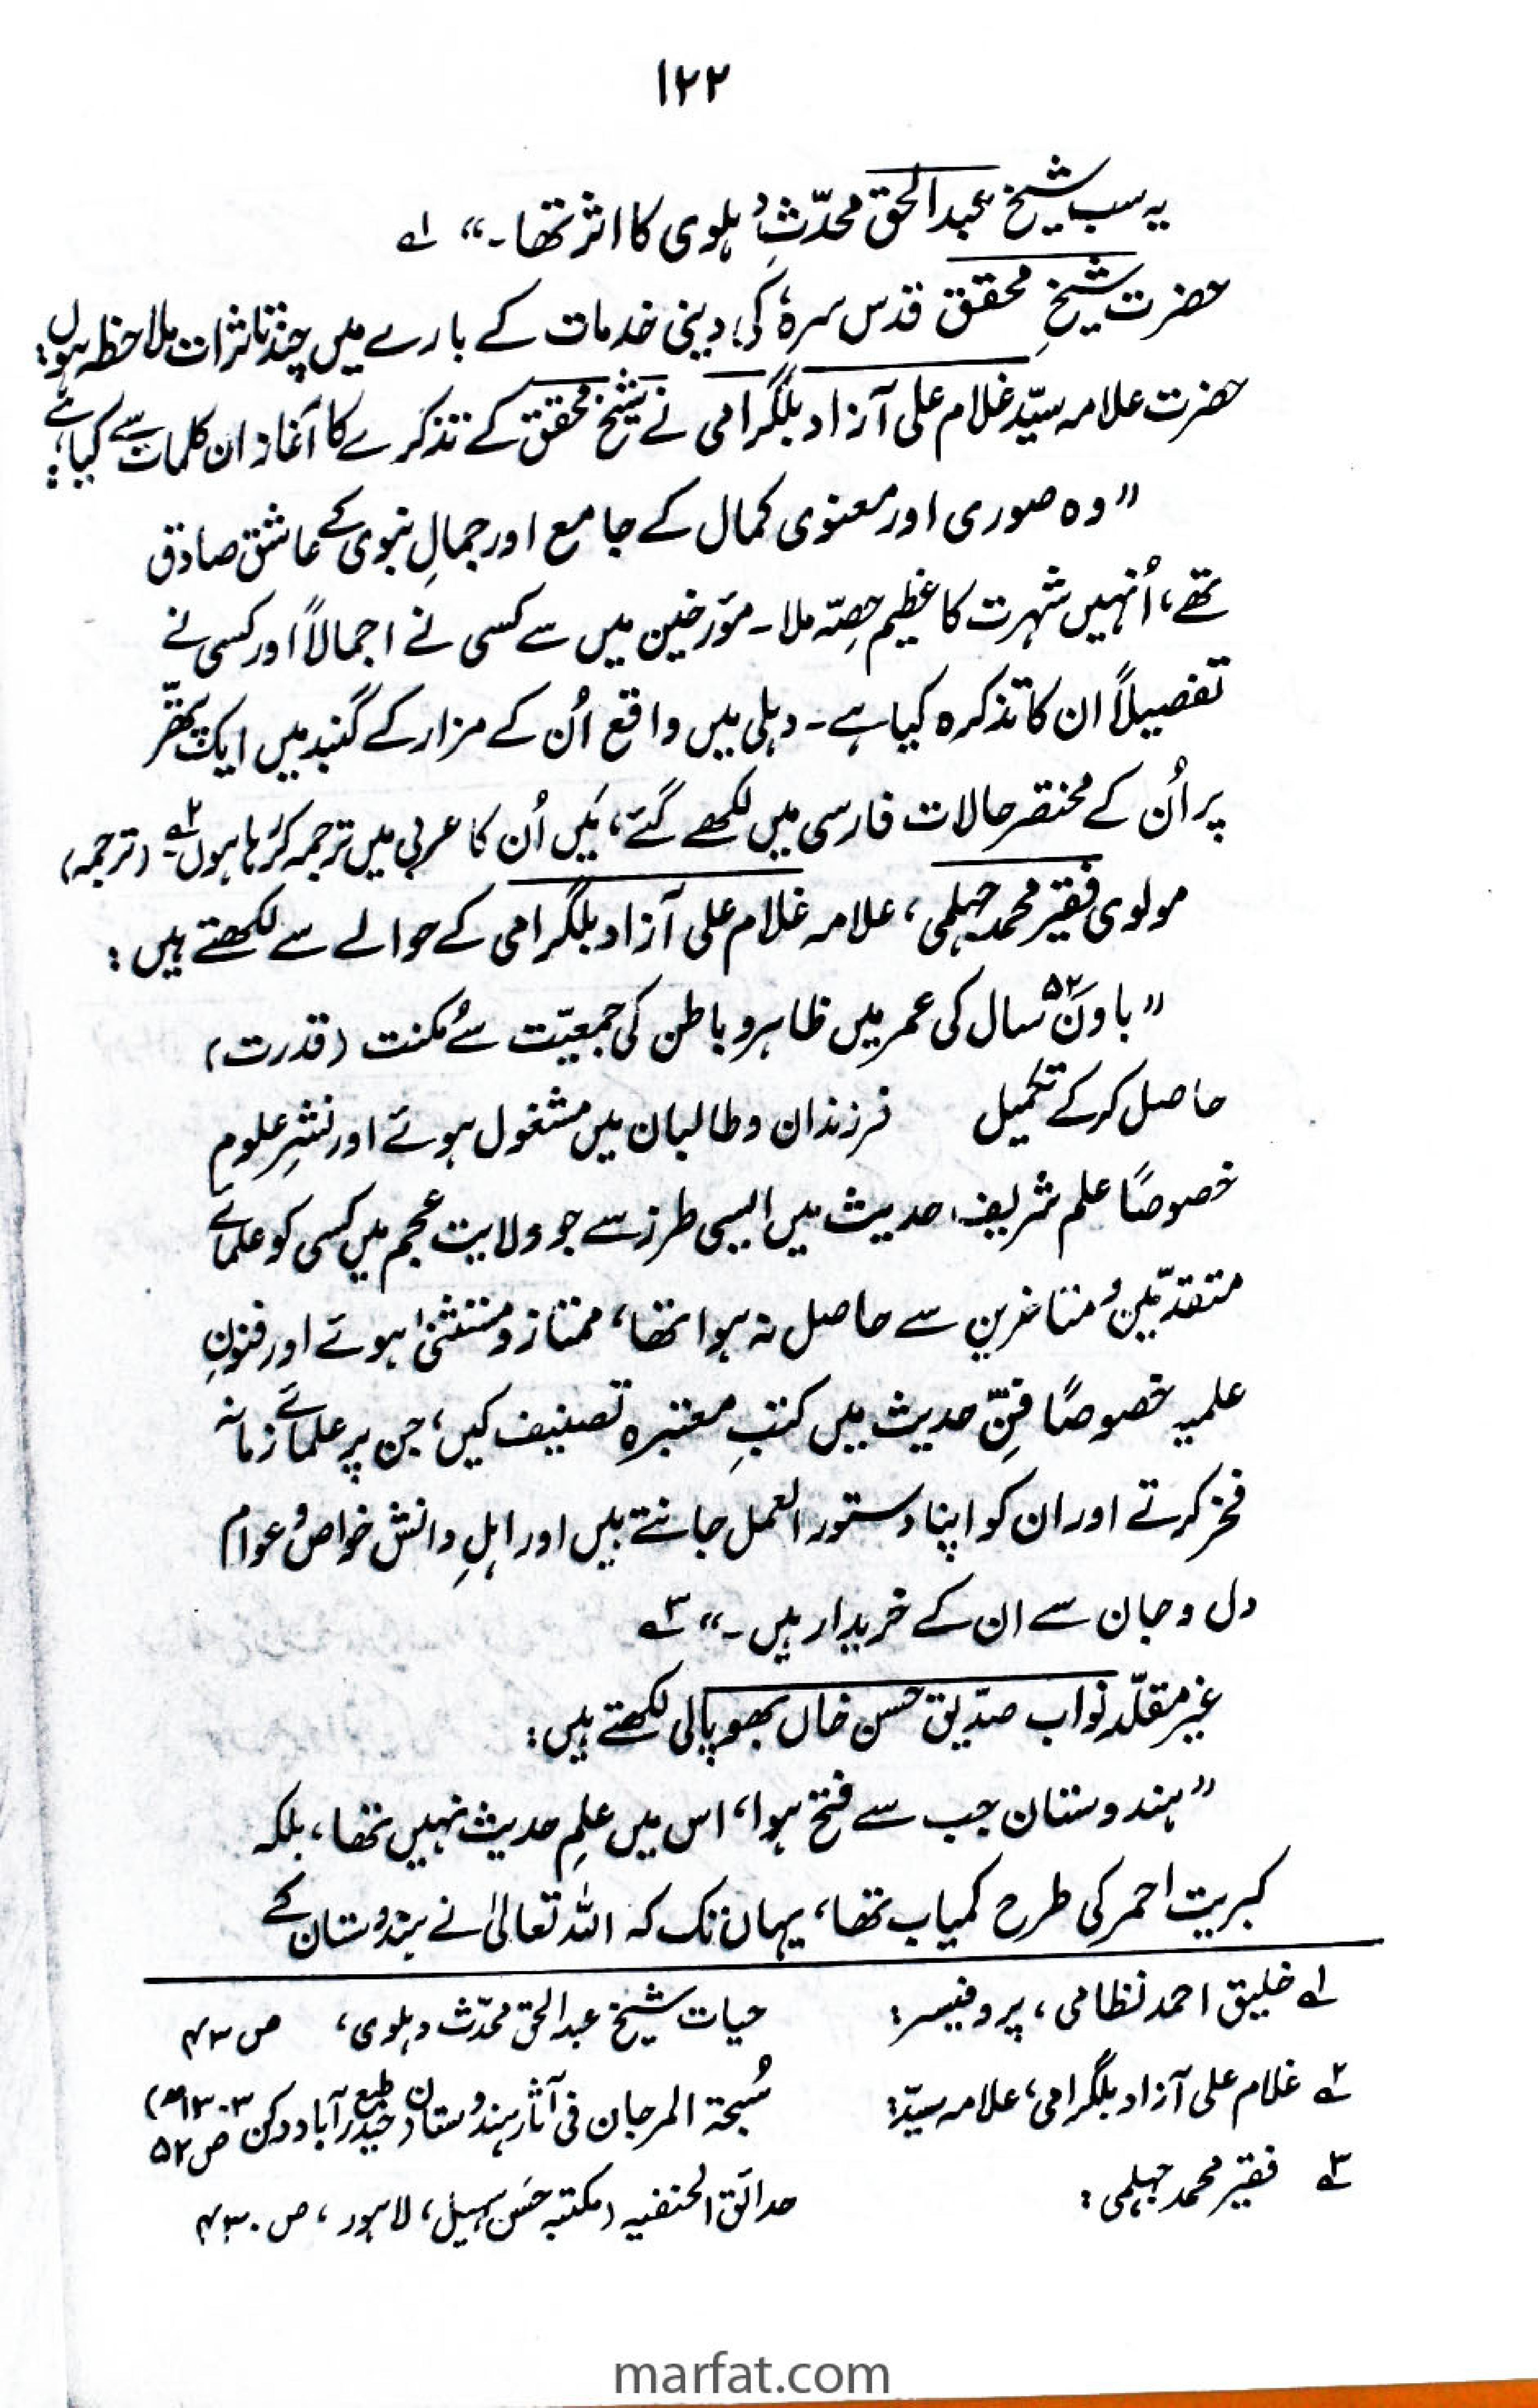 ۱۲۲
یہ سب شیخ عبدالحق محدّثِ دہلوی کا اثر تھا۔“ ۱ے
حضرت شیخِ محقق قدس سرہٗ کی دینی خدمات کے بارے میں چند تاثرات ملاحظہ ہوں:
حضرت علامہ سیّد غلام علی آزاد بلگرامی نے شیخ محقق کے تذکرے کا آغاز ان کلمات سے کیا ہے:
”وہ صوری اور معنوی کمال کے جامع اور جمالِ نبوی کے عاشق صادق
تھے، اُنہیں شہرت کا عظیم حصّہ ملا۔ مؤرخین میں سے کسی نے اجمالاً اور کسی نے
تفصیلاً ان کا تذکرہ کیا ہے۔ دہلی میں واقع اُن کے مزار کے گنبد میں ایک پتھّر
پر اُن کے مختصر حالات فارسی میں لکھے گئے، مَیں اُن کا عربی میں ترجمہ کر رہا ہوں۔ ۲ے (ترجمہ)
مولوی فقیر محمد جہلمی، علامہ غلام علی آزاد بلگرامی کے حوالے سے لکھتے ہیں:
”باوَن ۵۲ سال کی عمر میں ظاہر و باطن کی جمعیّت سے مُکنت (قدرت)
حاصل کر کے تکمیل فرزندان و طالبان میں مشغول ہوئے اور نشرِ علوم
خصوصاً علم شریف حدیث میں ایسی طرز سے جو ولایت عجم میں کسی کو علمائے
متقدّمین و متاخرین سے حاصل نہ ہوا تھا، ممتاز و مستثنیٰ ہوئے اور فنونِ
علمیہ خصوصاً فنِّ حدیث میں کتبِ معتبرہ تصنیف کیں، جن پر علمائے زمانہ
فخر کرتے اور ان کو اپنا دستور العمل جانتے ہیں اور اہلِ دانش خواص و عوام
دل و جان سے ان کے خریدار ہیں۔“ ۳ے
غیر مقلّد نواب صدّیق حسن خاں بھوپالی لکھتے ہیں:
”ہندوستان جب سے فتح ہوا، اس میں علمِ حدیث نہیں تھا، بلکہ
کبریت احمر کی طرح کمیاب تھا، یہاں تک کہ اللہ تعالیٰ نے ہندوستان کے
۱ے خلیق احمد نظامی، پروفیسر: حیات شیخ عبدالحق محدّث دہلوی، ص ۴۳
۲ے غلام علی آزاد بلگرامی، علامہ سیّد: سُبحۃ المرجان فی آثار ہندوستان (طبع حیدرآباد دکن ۱۳۰۳ھ) ص ۵۲
۳ے فقیر محمد جہلمی: حدائق الحنفیہ (مکتبہ حَسن سہیل، لاہور، ص ۴۳۰
marfat.com